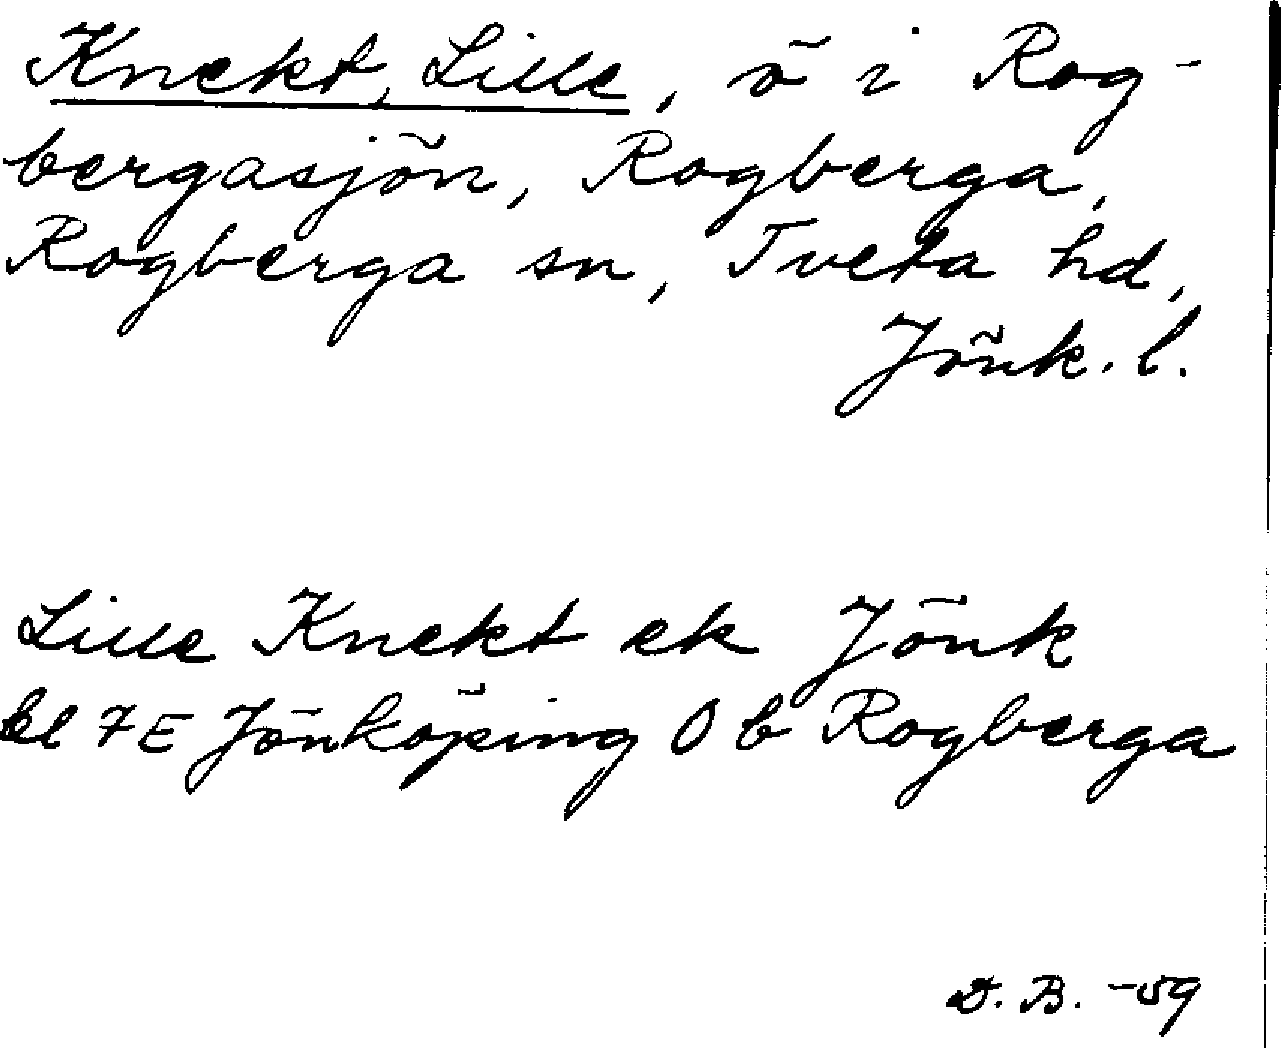 Knekt, Lille, ö i Rog-
bergasjön, Rogberga,
Rogberga sn, Tveta hd,
Jönk. l.
Lille Knekt ek Jönk
bl 7E Jönköping 0 b Rogberga
D. B. -59